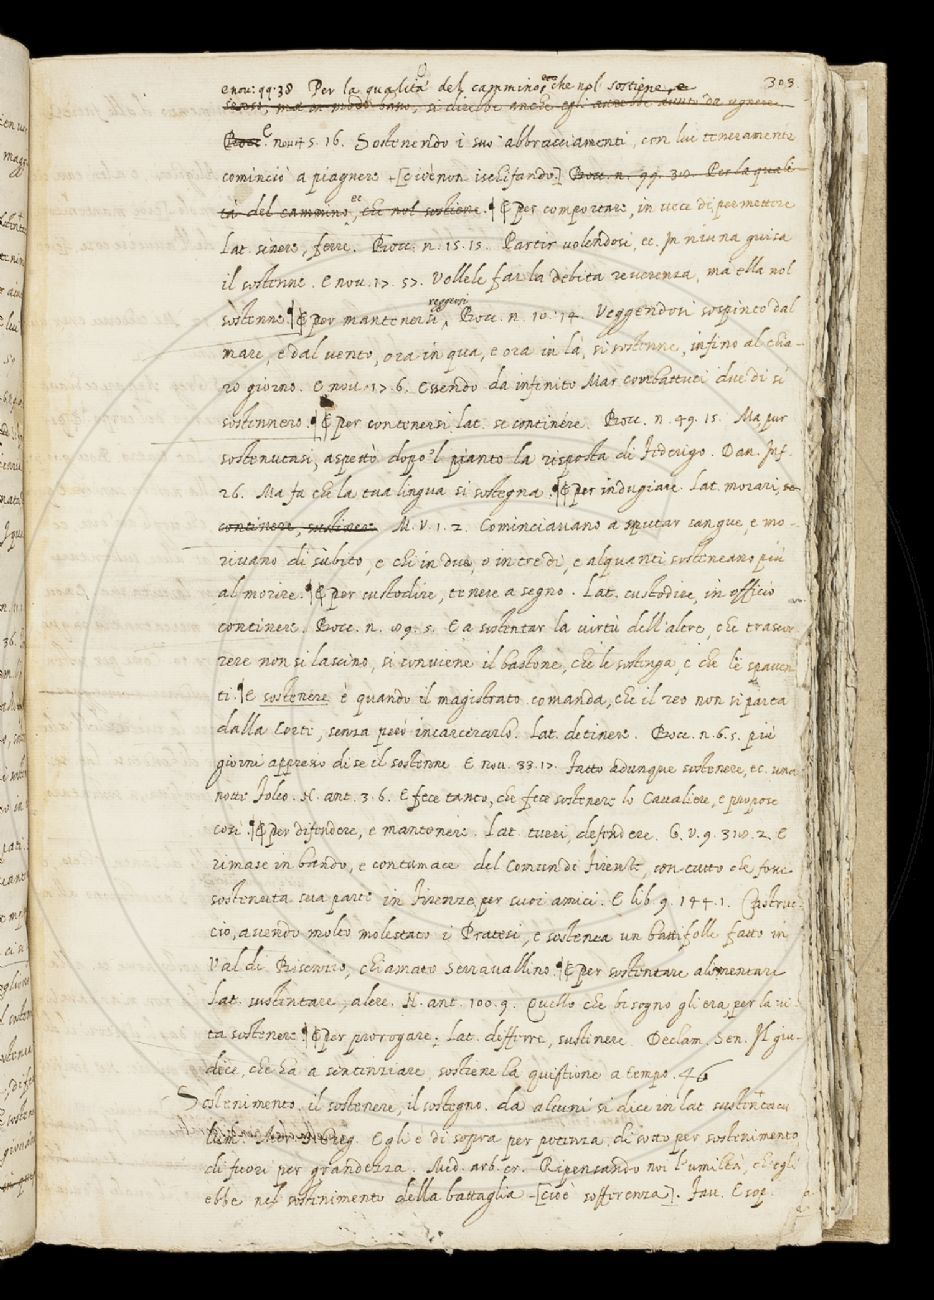 303
e nou: 99. 38 Per la qualità del cammino, che nol sostiene, e
senso, ma in modo basso, si direbbe anche egli
Bocc. E nou. 45. 16. Sostenendo i suoi abbracciamenti, con lui teneramente
cominciò a piagnere [cioè non ischifando.] Bocc. n. 99. 30. Per la quali-
tà del cammino, che nol sostiene. ¶ E per comportare, in uece di permettere
Lat. sinere, ferre. Bocc. n. 15. 15. Partir uolendosi, ec. In niuna guisa
il sostenne. E nou. 17. 57. Vollele far la debita reuerenza, ma ella nol
sostenne. ¶ E per mantenersi, reggersi Bocc. n. 10. 14. Veggendosi sospinto dal
mare, e dal uento, ora in qua, e ora in là, si sostenne, infino al chia-
ro giorno. E nou. 17. 6. Essendo da infinito Mar combattuti due dì si
sostennero. ¶ E per contenersi. lat. se continere. Bocc. n. 49. 15. Ma pur
sostenutasi, aspettò dopo 'l pianto la risposta di Federigo. Dan. Inf.
26. Ma fa che la tua lingua si sostegna. ¶ E per indugiare. Lat. morari, se
continere, sustinere. M. V. 1. 2. Cominciauano a sputar sangue, e mo-
riuano di sùbito, e chi in due, o in tre dì, e alquanti sosteneano più
al morire. ¶ E per custodire, tenere a segno. Lat. custodire, in officio
continere. Bocc. n. 89. 5. E a sostentar la uirtù dell'altre, che trascor
rere non si lascino, si conuiene il bastone, che le sostenga, e che le spauen
ti. ¶ E sostenere è quando il magistrato comanda, che il reo non si parta
dalla Corte, senza però incarcerarlo. Lat. detinere. Bocc. n. 6. 5. più
giorni appresso di se il sostenne E nou. 33. 17. Fatto adunque sostenere, ec. una
notte Folco. N. ant. 3. 6. E fece tanto, che fece sostenere lo Caualiere, e propose
così. ¶ E per difendere, e mantenere. Lat. tueri, defendere. G. V. 9. 318. 2. E
rimase in bando, e contumace del Comun di Firenze, con tutto che fosse
sostenuta sua parte in Firenze per suoi amici. E lib. 9. 144. 1. Castruc-
cio, auendo molto molestato i Pratesi, e sostenea un battifolle fatto in
Val di Bisenzio, chiamato Serrauallino. ¶ E per sostentare alimentare
Lat. sustentare, alere. N. ant. 100. 9. Quello che bisogno gli era per la ui-
ta sostenere. ¶ E per prorogare. Lat. differre, sustinere. Declam. Sen. Il giu-
dice, che ha a sentenziare, sostiene la quistione a tempo. 46
Sostenimento. il sostenere, il sostegno. da alcuni si dice in lat. sustentacu
lum. Egli è di sopra per potenza, di sotto per sostenimento
di fuori per grandezza. Med. arb. cr. Ripensando noi l'umiltà, ch'egli
ebbe nel sostenimento della battaglia [cioè sofferenza]. Fau. Esop.